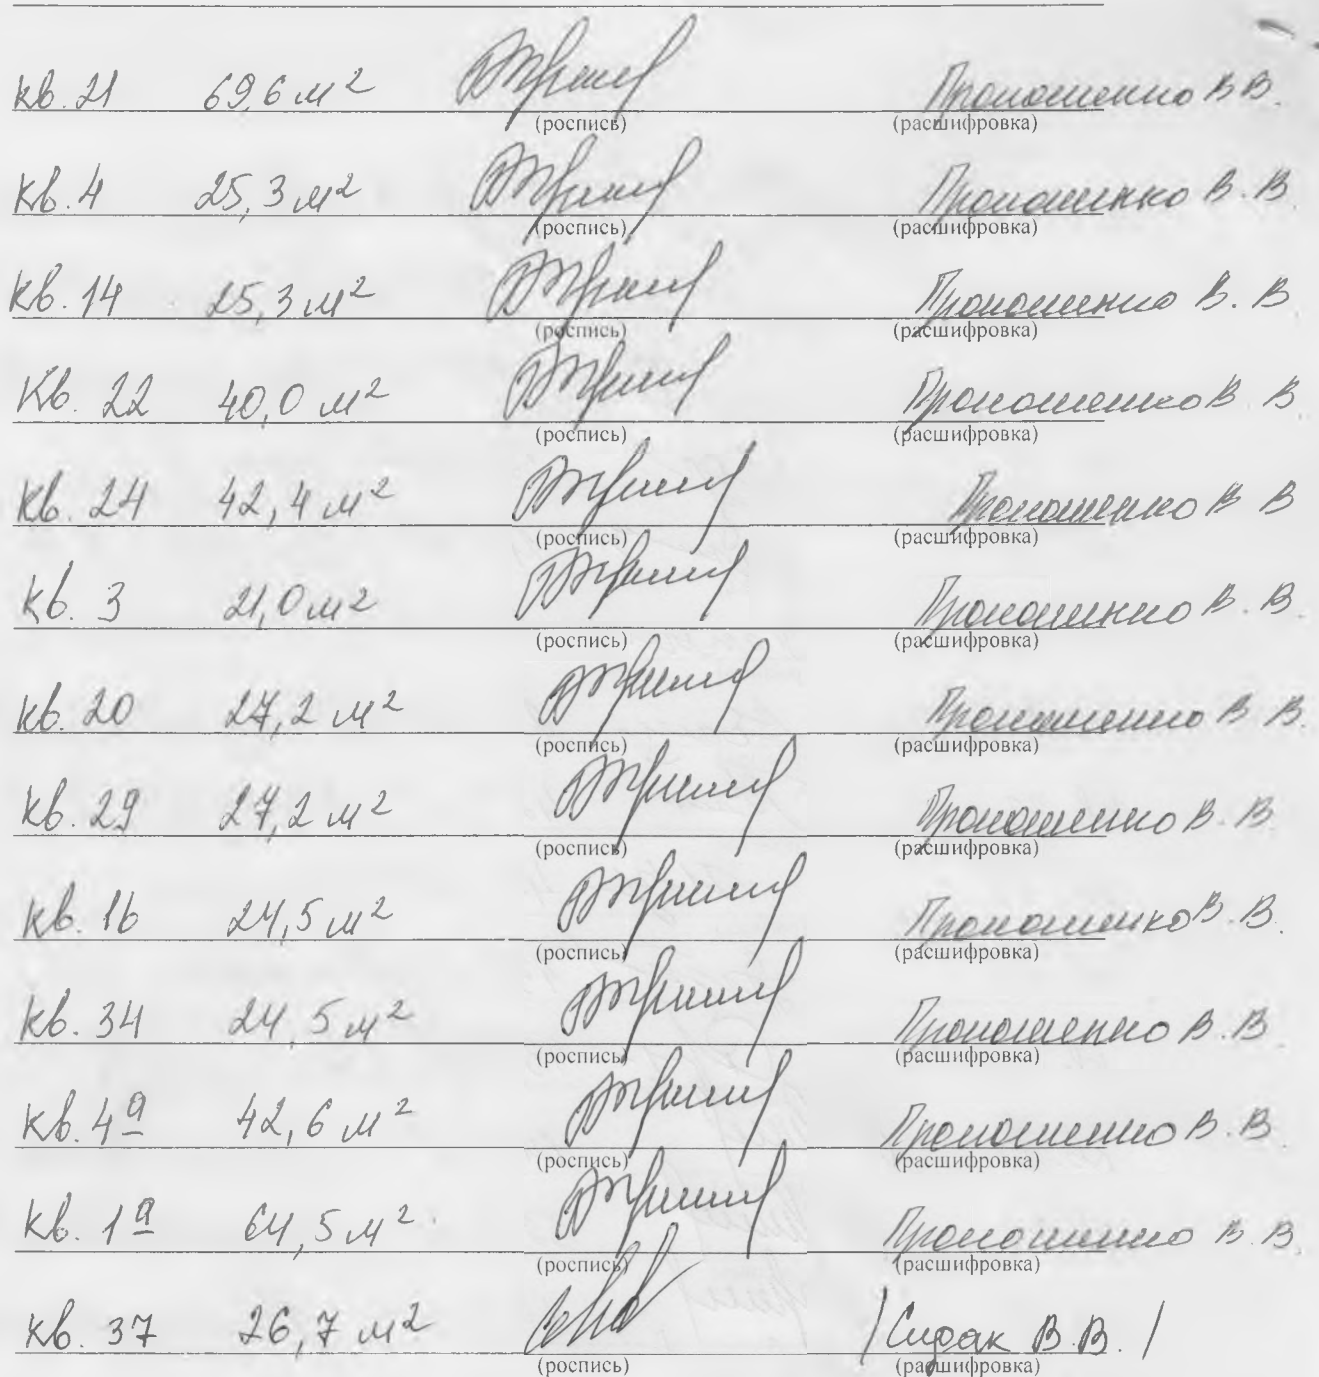 кв. 21 69,6 м² Прокошенко В.В.
(роспись) (расшифровка)
кв. 4 25,3 м² Прокошенко В.В.
(роспись) (расшифровка)
кв. 14 25,3 м² Прокошенко В.В
(роспись) (расшифровка)
кв. 22 40,0 м² Прокошенко В. В
(роспись) (расшифровка)
кв. 24 42,4 м² Прокошенко В В
(роспись) (расшифровка)
кв. 3 21,0 м² Прокошенко В.В.
(роспись) (расшифровка)
кв. 20 27,2 м² Прокошенко В В.
(роспись) (расшифровка)
кв. 29 27,2 м² Прокошенко В.В.
(роспись) (расшифровка)
кв. 16 24,5 м² Прокошенко В.В.
(роспись) (расшифровка)
кв. 34 24,5 м² Прокошенко В.В
(роспись) (расшифровка)
кв. 4а 42,6 м² Прокошенко В.В.
(роспись) (расшифровка)
кв. 1а 64,5 м² Прокошенко В.В.
(роспись) (расшифровка)
кв. 37 26,7 м² /Сирак В.В./
(роспись) (расшифровка)